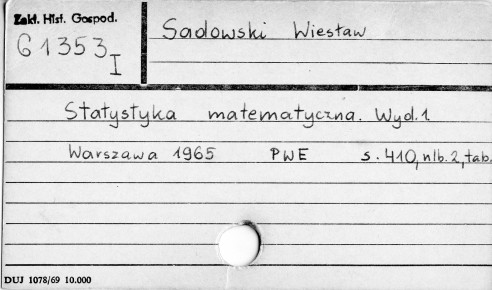 Zakł. Hist. Gospod.
G 1353 I
Sadowski Wiesław
Statystyka matematyczna. Wyd. 1
Warszawa 1965 PWE s. 410, nlb. 2, tab.
DUJ 1078/69 10.000